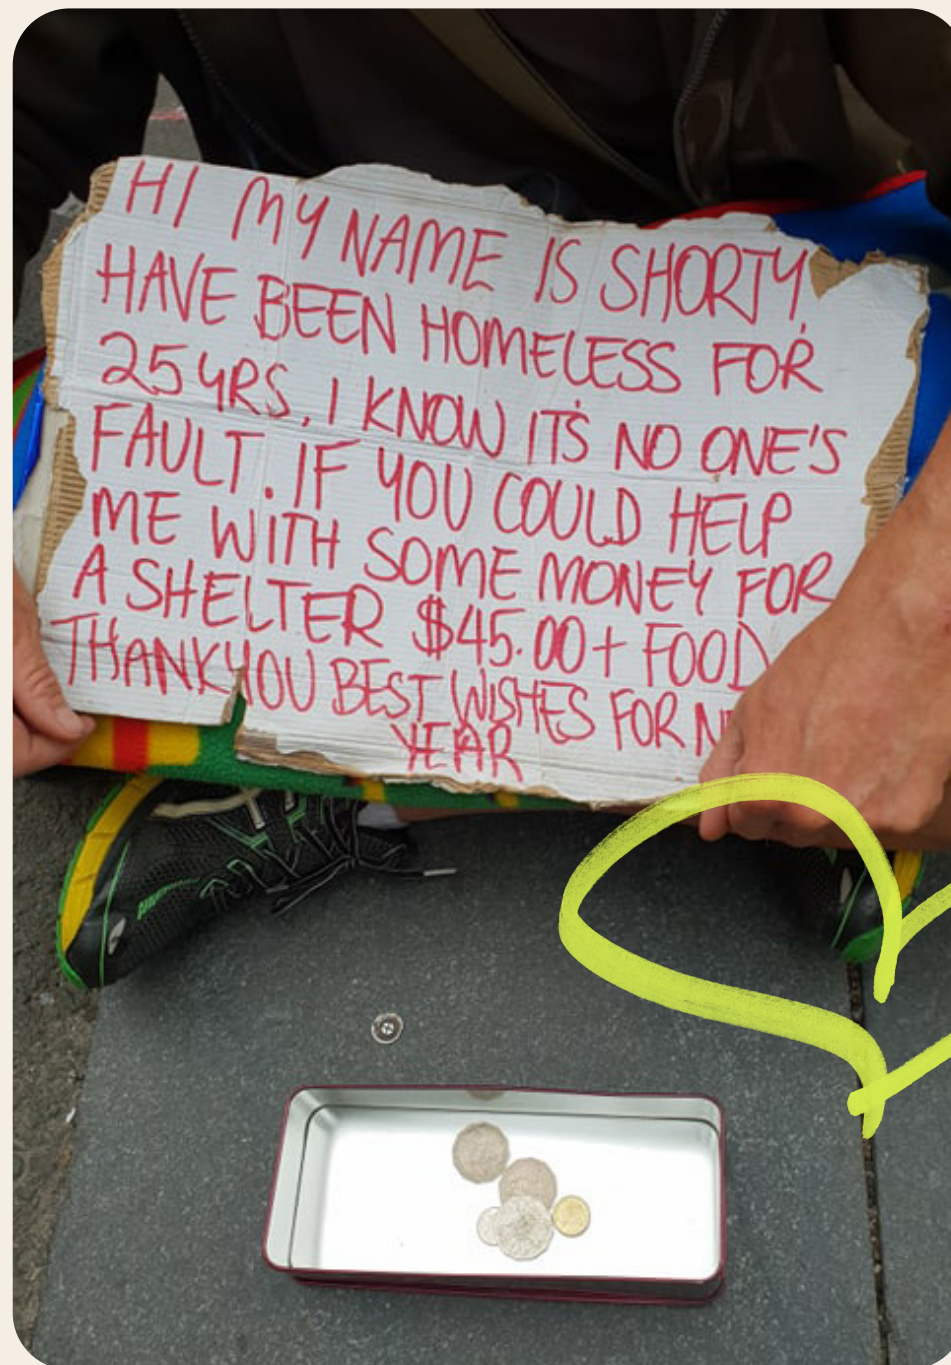 HI MY NAME IS SHORTY,
HAVE BEEN HOMELESS FOR
25 YRS. I KNOW IT'S NO ONE'S
FAULT. IF YOU COULD HELP
ME WITH SOME MONEY FOR
A SHELTER $45.00 + FOOD
THANKYOU BEST WISHES FOR
YEAR